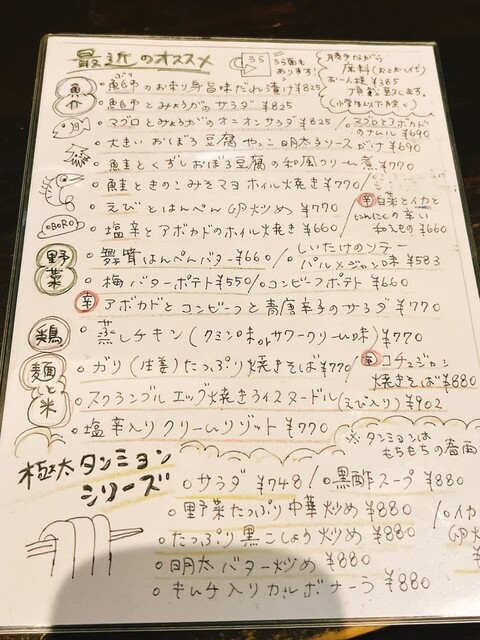 最近のオススメ
35
うら面も
あります!
勝手ながら
席料(おとおし代)
お一人様 ¥385
頂戴致します。
(小学生以下除く)
魚介
ぶり
のお刺身旨味だれ漬け ¥825
とみょうがのサラダ ¥825
マグロとみょうがのオニオンサラダ ¥825
マグロとアボカドの
ナムル ¥690
大きいおぼろ豆腐やっこ 明太子ソースがけ ¥690
鮭とくずしおぼろ豆腐の和風クリーム煮 ¥770
鮭ときのこみそマヨホイル焼き ¥770
えびとはんぺん卵炒め ¥770
辛 白菜とイカと
にんにくの辛い
和えもの ¥660
OBORO
塩辛とアボカドのホイル焼き ¥660
野菜
舞茸はんぺんバター ¥660
しいたけのソテー
パルメジャン味 ¥583
梅バターポテト ¥550/コンビーフポテト ¥660
辛 アボカドとコンビーフと青唐辛子のサラダ ¥770
鶏
蒸しチキン(クミン味orサワークリーム味) ¥770
麺と米
ガリ(生姜)たっぷり焼きそば ¥770
辛 コチュジャン
焼きそば ¥880
スクランブルエッグ焼きライスヌードル(えび入り) ¥902
塩辛入りクリームリゾット ¥770
※タンミョンは
もちもちの春雨
極太タンミョン
シリーズ
サラダ ¥748/黒酢スープ ¥880
野菜たっぷり中華炒め ¥880
/イカ
卵炒め
たっぷり黒こしょう炒め ¥880
明太バター炒め ¥880
キムチ入りカルボナーラ ¥880